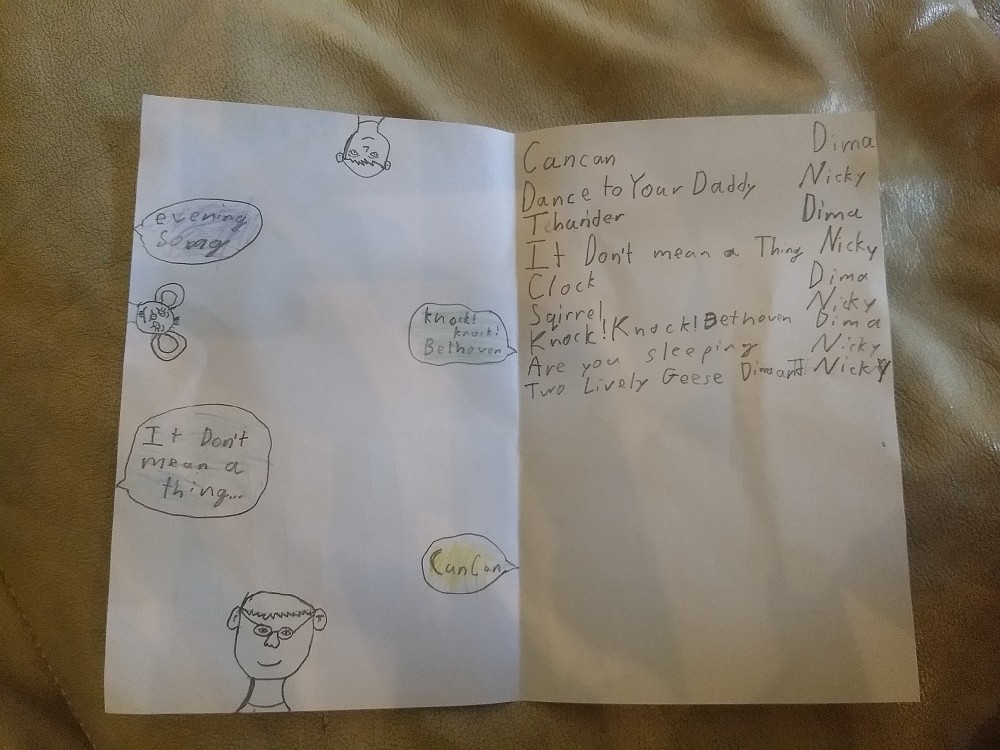 evening
Song
knock!
knock!
Bethoven
It Don't
mean a
thing...
CanCan
Cancan Dima
Dance to Your Daddy Nicky
Tchunder Dima
It Don't mean a Thing Nicky
Clock Dima
Sqirrel Nicky
Knock! Knock! Bethoven Dima
Are you sleeping Nicky
Two Lively Geese Dima and Nicky